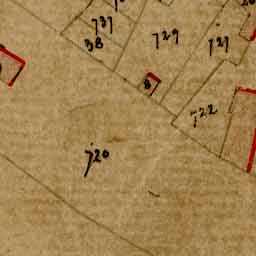 737
38
729
727
8
722
720